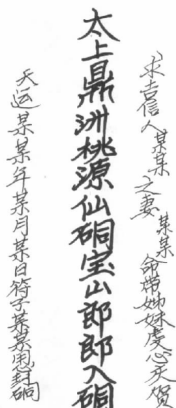 求吉信人某某之妻某某命带姊妹虔心天贺
太上鼎洲桃源仙硐宝山郎郎入硐
天运某某年某月某日符子某某惠封硐